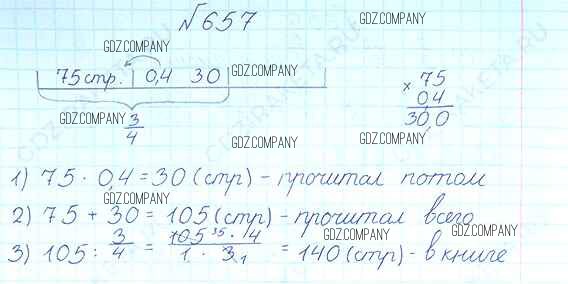 №657
GDZ.COMPANY
GDZ.COMPANY
75 стр. 0,4 30 GDZ.COMPANY
GDZ.COMPANY 3/4
× 75
0,4
30,0
GDZ.COMPANY
GDZ.COMPANY
1) 75 · 0,4 = 30 (стр) - прочитал потом
GDZ.COMPANY
2) 75 + 30 = 105 (стр) - прочитал всего
GDZ.COMPANY
GDZ.COMPANY
3) 105 : 3/4 = 105 35 · 4 / 1 · 3 1 = 140 (стр) - в книге